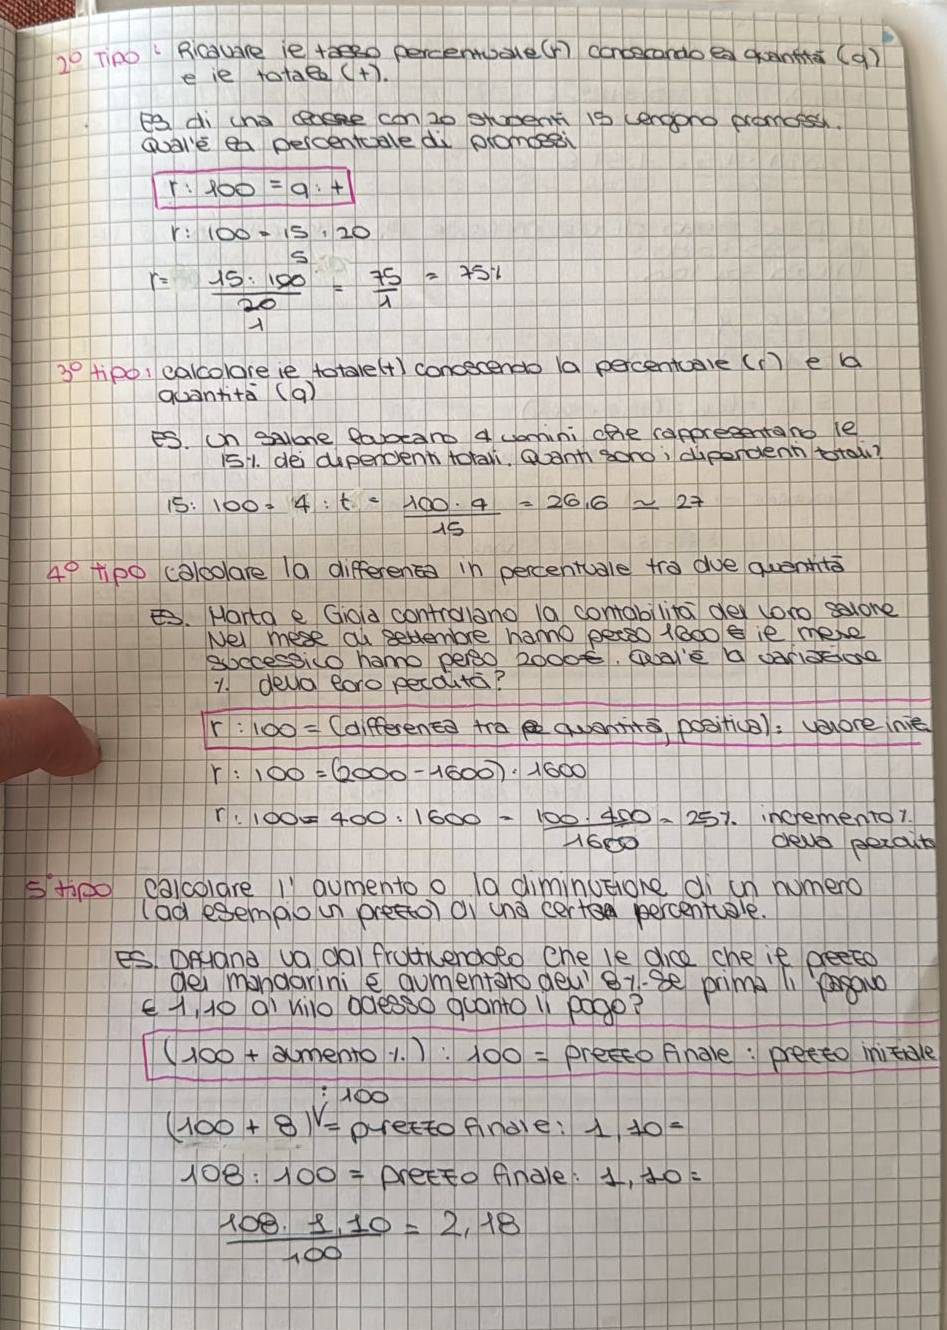 2° Tipo: Ricavare il tasso percentuale (r) conoscendo la quantità (q)
e il totale (t).
Es. di una classe con 20 studenti 15 vengono promossi.
Qual'è la percentuale di promossi
r: 100 = q: t
r: 100 = 15 : 20
5
r= 15. 100 = 75 = 75%
20 1
1
3° tipo: calcolare il totale (t) conoscendo la percentuale (r) e la
quantità (q)
ES. Un salone lavorano 4 uomini che rappresentano il
15% dei dipendenti totali. Quanti sono i dipendenti totali?
15: 100 = 4 : t = 100. 4 = 26,6 ≃ 27
15
4° tipo calcolare la differenza in percentuale tra due quantità
ES. Marta e Gioia controllano la contabilità del loro salone
Nel mese di settembre hanno perso 1600 € il mese
successivo hanno perso 2000€. Qual'è la variazione
% della loro perdita?
r : 100 = (differenza tra le quantità, positiva): valore inie
r : 100 = (2000 - 1600) : 1600
r : 100 = 400 : 1600 = 100. 400 = 25% incremento %
1600 della perdita
5° tipo Calcolare l' aumento o la diminuzione di un numero
(ad esempio un prezzo) di una certa percentuale.
ES. DAYANA va dal fruttivendolo che le dice che il prezzo
dei mandarini è aumentato dell' 8%. Se prima li pagavo
€ 1,10 al kilo adesso quanto li pago?
(100 + aumento %) : 100 = prezzo finale : prezzo iniziale
: 100
(100 + 8) = prezzo finale: 1,10 =
108 : 100 = prezzo finale: 1,10 =
108. 1,10 = 2,18
100